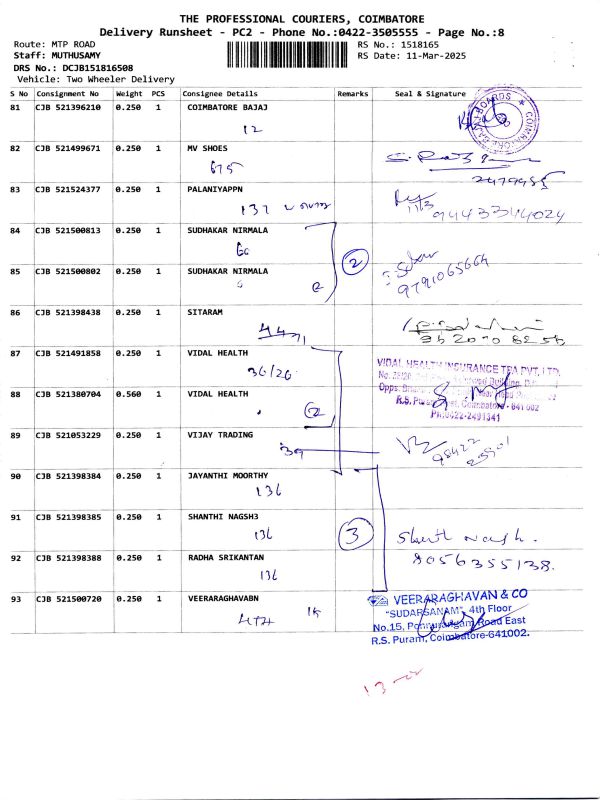 THE PROFESSIONAL COURIERS, COIMBATORE
Delivery Runsheet - PC2 - Phone No.:0422-3505555 - Page No.:8
Route: MTP ROAD
RS No.: 1518165
Staff: MUTHUSAMY
RS Date: 11-Mar-2025
DRS No.: DCJB151816508
Vehicle: Two Wheeler Delivery
S No Consignment No Weight PCS Consignee Details Remarks Seal & Signature
81 CJB 521396210 0.250 1 COIMBATORE BAJAJ
12
82 CJB 521499671 0.250 1 MV SHOES
675
2479955
83 CJB 521524377 0.250 1 PALANIYAPPN
137
9443334024
84 CJB 521500813 0.250 1 SUDHAKAR NIRMALA
60
2
85 CJB 521500802 0.250 1 SUDHAKAR NIRMALA
9791065664
86 CJB 521398438 0.250 1 SITARAM
87 CJB 521491858 0.250 1 VIDAL HEALTH
36/26
VIDAL HEALTH INSURANCE TPA PVT. LTD.
88 CJB 521380704 0.560 1 VIDAL HEALTH
2
R.S. Puram West, Coimbatore - 641 002
PH:0422-2491341
89 CJB 521053229 0.250 1 VIJAY TRADING
39
98422
90 CJB 521398384 0.250 1 JAYANTHI MOORTHY
136
91 CJB 521398385 0.250 1 SHANTHI NAGSH3
136
3
8056355138.
92 CJB 521398388 0.250 1 RADHA SRIKANTAN
136
93 CJB 521500720 0.250 1 VEERARAGHAVABN
VEERARAGHAVAN & CO
"SUDARSANAM", 4th Floor
No.15, Ponnurangam Road East
R.S. Puram, Coimbatore-641002.